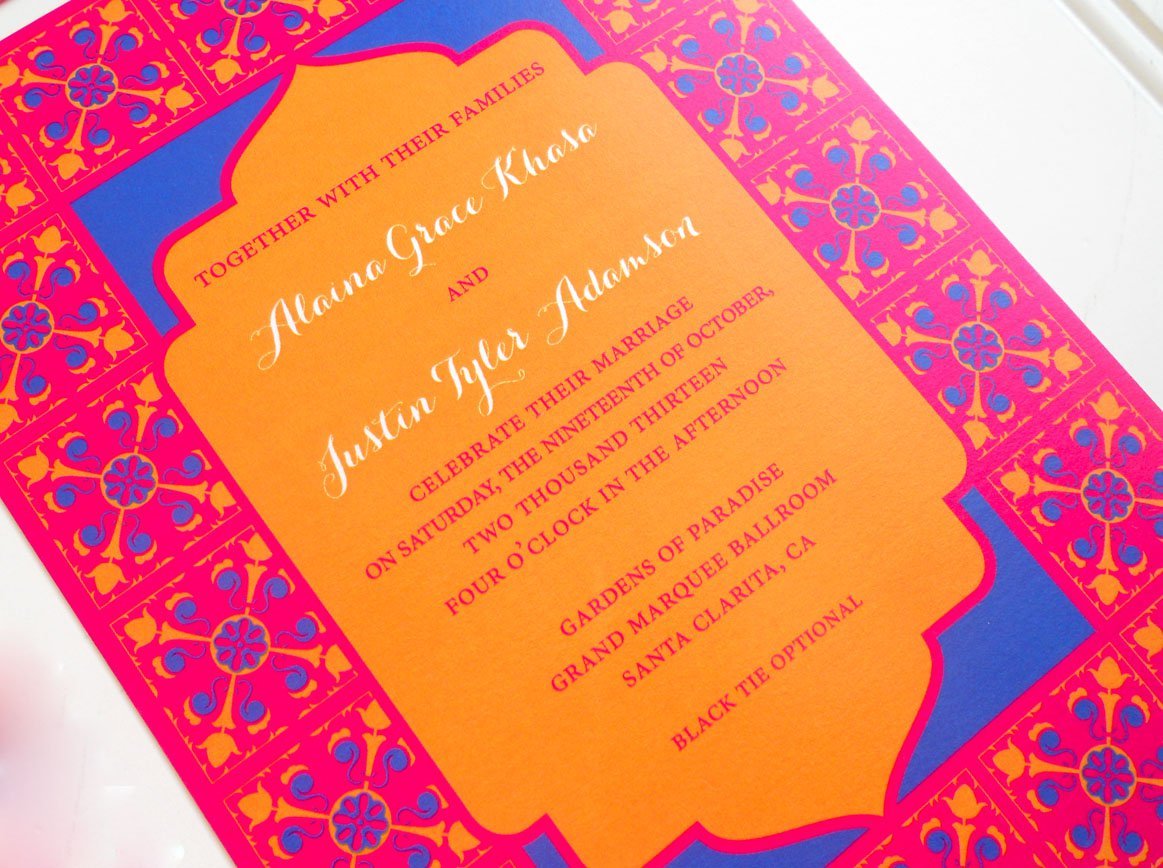 TOGETHER WITH THEIR FAMILIES
Alaina Grace Khasa
AND
Justin Tyler Adamson
CELEBRATE THEIR MARRIAGE
ON SATURDAY, THE NINETEENTH OF OCTOBER,
TWO THOUSAND THIRTEEN
FOUR O'CLOCK IN THE AFTERNOON
GARDENS OF PARADISE
GRAND MARQUEE BALLROOM
SANTA CLARITA, CA
BLACK TIE OPTIONAL